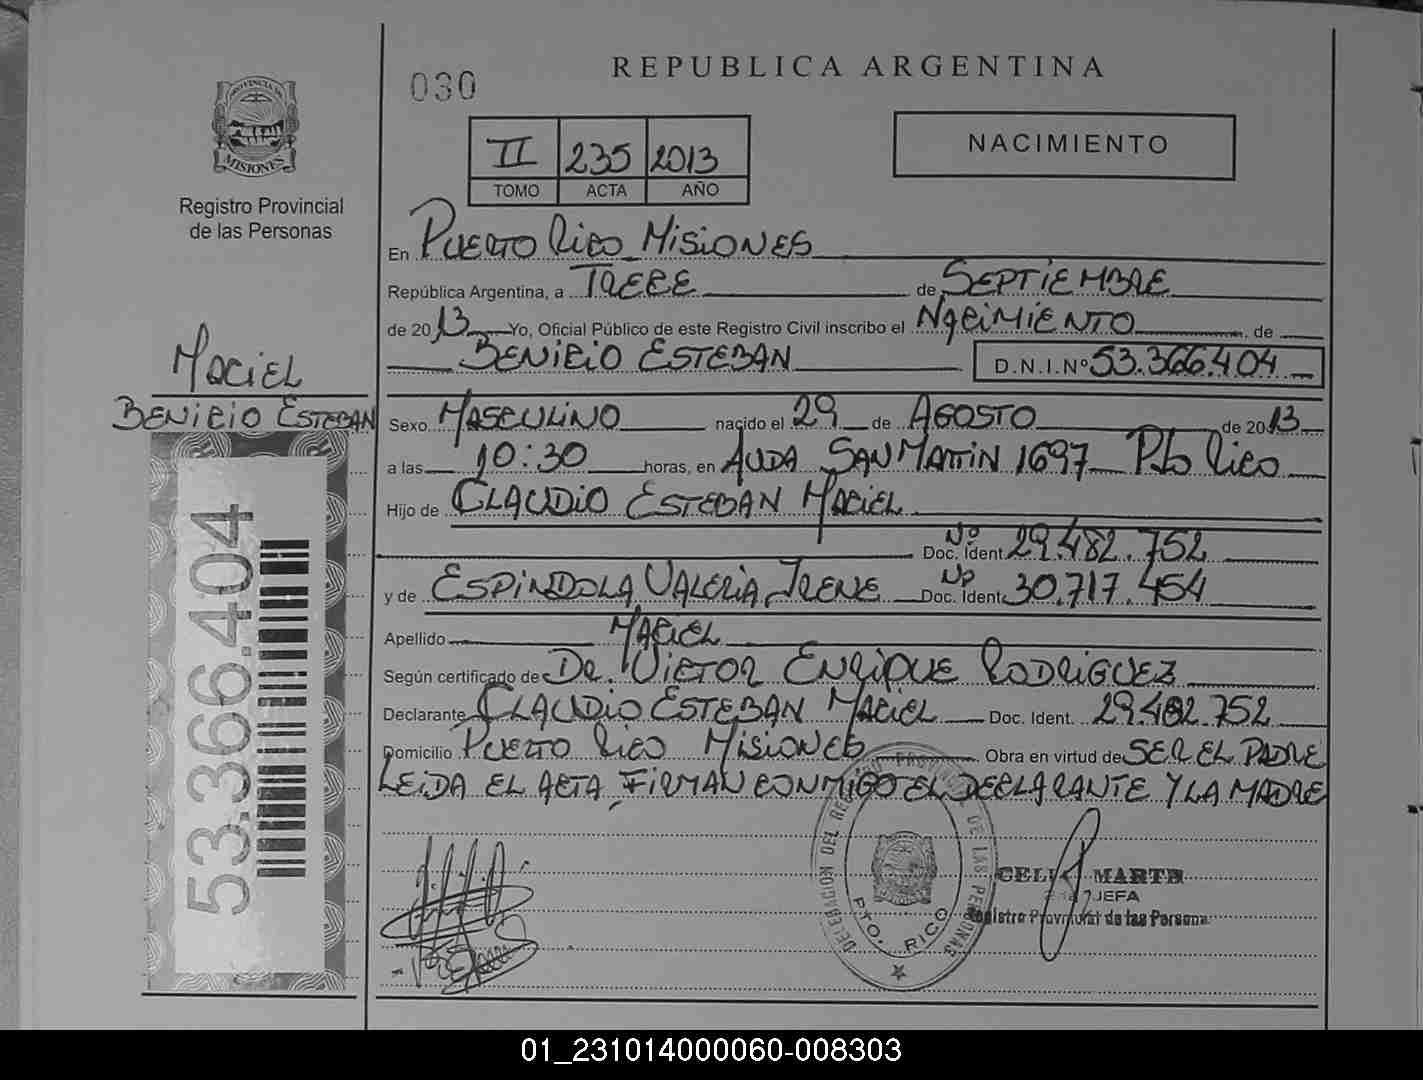 030
REPUBLICA ARGENTINA
PROVINCIA DE
MISIONES
Registro Provincial
de las Personas
II 235 2013
TOMO ACTA AÑO
NACIMIENTO
En PUERTO RICO MISIONES
República Argentina, a TRECE de SEPTIEMBRE
de 2013 Yo, Oficial Público de este Registro Civil inscribo el NACIMIENTO de
BENICIO ESTEBAN D.N.I. Nº 53.366.404
MACIEL
BENICIO ESTEBAN
Sexo MASCULINO nacido el 29 de AGOSTO de 2013
a las 10:30 horas, en AVDA SAN MARTIN 1697 Pto Rico
Hijo de CLAUDIO ESTEBAN MACIEL
Doc. Ident. Nº 29.482.752
y de ESPINDOLA VALERIA IRENE Doc. Ident. Nº 30.717.454
Apellido MACIEL
Según certificado de DR. VICTOR ENRIQUE RODRIGUEZ
Declarante CLAUDIO ESTEBAN MACIEL Doc. Ident. 29.482.752
Domicilio PUERTO RICO MISIONES Obra en virtud de SER EL PADRE
LEIDA EL ACTA, FIRMAN CONMIGO EL DECLARANTE Y LA MADRE
53.366.404
DELEGACION DEL REGISTRO PROVINCIAL DE LAS PERSONAS
PTO. RICO
MARTE
JEFA
Registro Provincial de las Personas
01_231014000060-008303